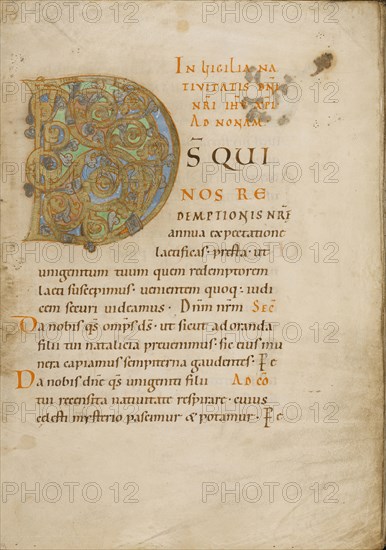 IN VIGILIA NA
TIVITATIS DÑI
NRI IHV XPI
AD NONAM.
D
S̄ QUI
NOS RE
DEMPTIONIS NRĘ
annua expectatione
laetificas· presta· ut
unigenitum tuum quem redemptorem
laeti suscepimus· uenientem quoq· iudi
cem securi uideamus· Dn̄m nr̄m SEC̄
Da nobis qs̄ omp̄s ds̄· ut sicut adoranda
filii tui natalicia preuenimus· sic eius mu
nera capiamus sempiterna gaudentes· P̄
Da nobis dn̄e qs̄ unigeniti filii AD CŌ
tui recensita natiuitate respirare· cuius
caelesti mysterio pascimur & potamur· P̄
PHOTO 12